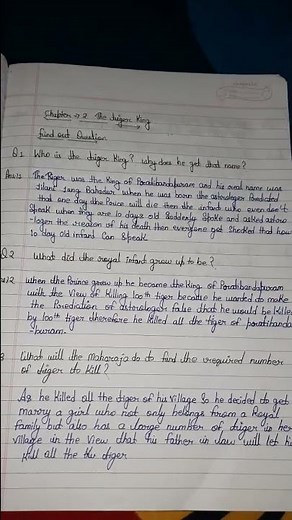 Chapter → 2 The tiger King
find out Question
Q1 Who is the tiger King? why does he get that name?
Ans:1 The Tiger was the King of Pratibandapuram and his oreal name was
Jilani Jang Bahadur when he was born the astrologer Predicted
that one day the Prince will die then the infant who even don't
Speak when they are 10 days old Suddenly Spoke and asked astro
-loger the reason of his death then everyone get Shocked that how
10 day old infant Can Speak
Q.2 What did the royal infant grew up to be?
when the Prince grew up he become the King of Paratibandapuram
with the View of Killing 100th tiger because he wanted to make
the Poredection of astrologer false that he would be Killed
by 100th tiger therefore he killed all the tiger of paratibanda
-puram.
3 What will the Maharaja do to find the required number
of tiger to Kill?
As he Killed all the tiger of his Village So he decided to get
marry a girl who not only belongs from a Royal
family but also has a large number of tiger in her
village in the View that his father in law will let hi
kill all the the tiger